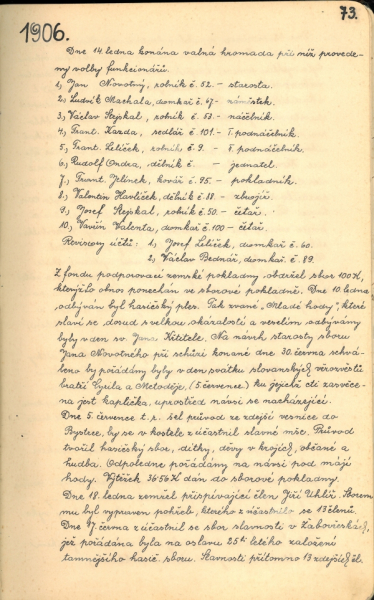 73.
1906.
Dne 14. ledna konána valná hromada při níž provede-
ny volby funkcionářů.
1.) Jan Novotný, rolník č. 52. - starosta.
2.) Ludvík Machala, domkař č. 67. - náměstek.
3.) Václav Stejskal, rolník č. 53. - náčelník.
4.) Frant. Kazda, sedlář č. 101. - I. podnáčelník.
5.) Frant. Leříček, rolník č. 9. - II. podnáčelník.
6.) Rudolf Ondra, dělník č. - jednatel.
7.) Frant. Jelínek, kovář č. 95. - pokladník.
8.) Valentin Havlíček, dělník č. 88. - zbrojíř.
9.) Josef Stejskal, rolník č. 50. - četař.
10.) Vavřin Valenta, domkař č. 100 - četař.
Revisory účtů: 1.) Josef Leříček, domkař č. 60.
2.) Václav Bednář, domkař č. 89.
Z fondu podporovací zemské pokladny obdržel sbor 100 K,
kterýžto obnos ponechán ve sborové pokladně. Dne 10. ledna
odbýván byl hasičský ples. Tak zvané "Mladé hody", které
slaví se dosud s velkou okázalostí a veselím odbývány
byly v den sv. Jana Křtitele. Na návrh starosty sboru
Jana Novotného při schůzi konané dne 30. června schvá-
leno by pořádány byly v den svátku slovanských věrozvěstů
bratří Cyrila a Metoděje, (5. července) ku jejichž cti zasvěce-
na jest kaplička, uprostřed návsi se nacházející.
Dne 5. července t. r. šel průvod ze zdejší vesnice do
Bystrce, by se v kostele zúčastnil slavné mše. Průvod
tvořil hasičský sbor, dítky, děvy v krojích, občané a
hudba. Odpoledne pořádány na návsi pod májí
hody. Výtěžek 36·56 K dán do sborové pokladny.
Dne 18. ledna zemřel přispívající člen Jiří Uhlíř. Sborem
mu byl vypraven pohřeb, kterého zúčastnilo se 13 členů.
Dne 17. června zúčastnil se sbor slavnosti v Žabovřeskách,
jež pořádána byla na oslavu 25ti letého založení
tamnějšího hasič. sboru. Slavnosti přítomno 13 zdejších čl.